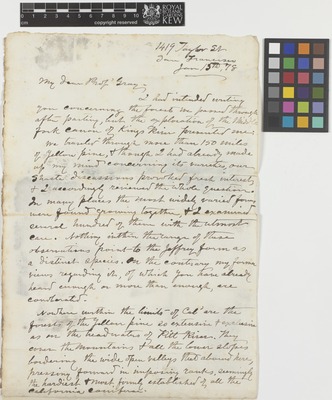 1419 Taylor St.
San Francisco
Jan 15th /78
My dear Prof. Gray,
I had intended writing
you concerning the forests we passed through
after parting, but the exploration of the
fork canon of Kings River prevented me.
We travelled through more than 150 miles
of Yellow pine, & though I had already made
up my mind concerning its variety, our
Shasta discussions provoked fresh interest
& I accordingly reviewed the whole question.
In many places the most widely varied forms
were found growing together, & I examined
several hundred of them with the utmost
care. Nothing within the range of these
observations point to the Jeffrey form as
a distinct species. On the contrary my former
views regarding it, of which you have already
heard enough or more than enough, are
corroborated.
Nowhere within the limits of Cal are the
forests of the yellow pine so extensive & exclusive
as on the headwaters of Pitt River. They
cover the mountains & all the lower slopes
bordering the wide open valleys that abound here,
pressing forward in imposing ranks, seemingly
the hardiest & most firmly established of all the
California coniferae.
KEW